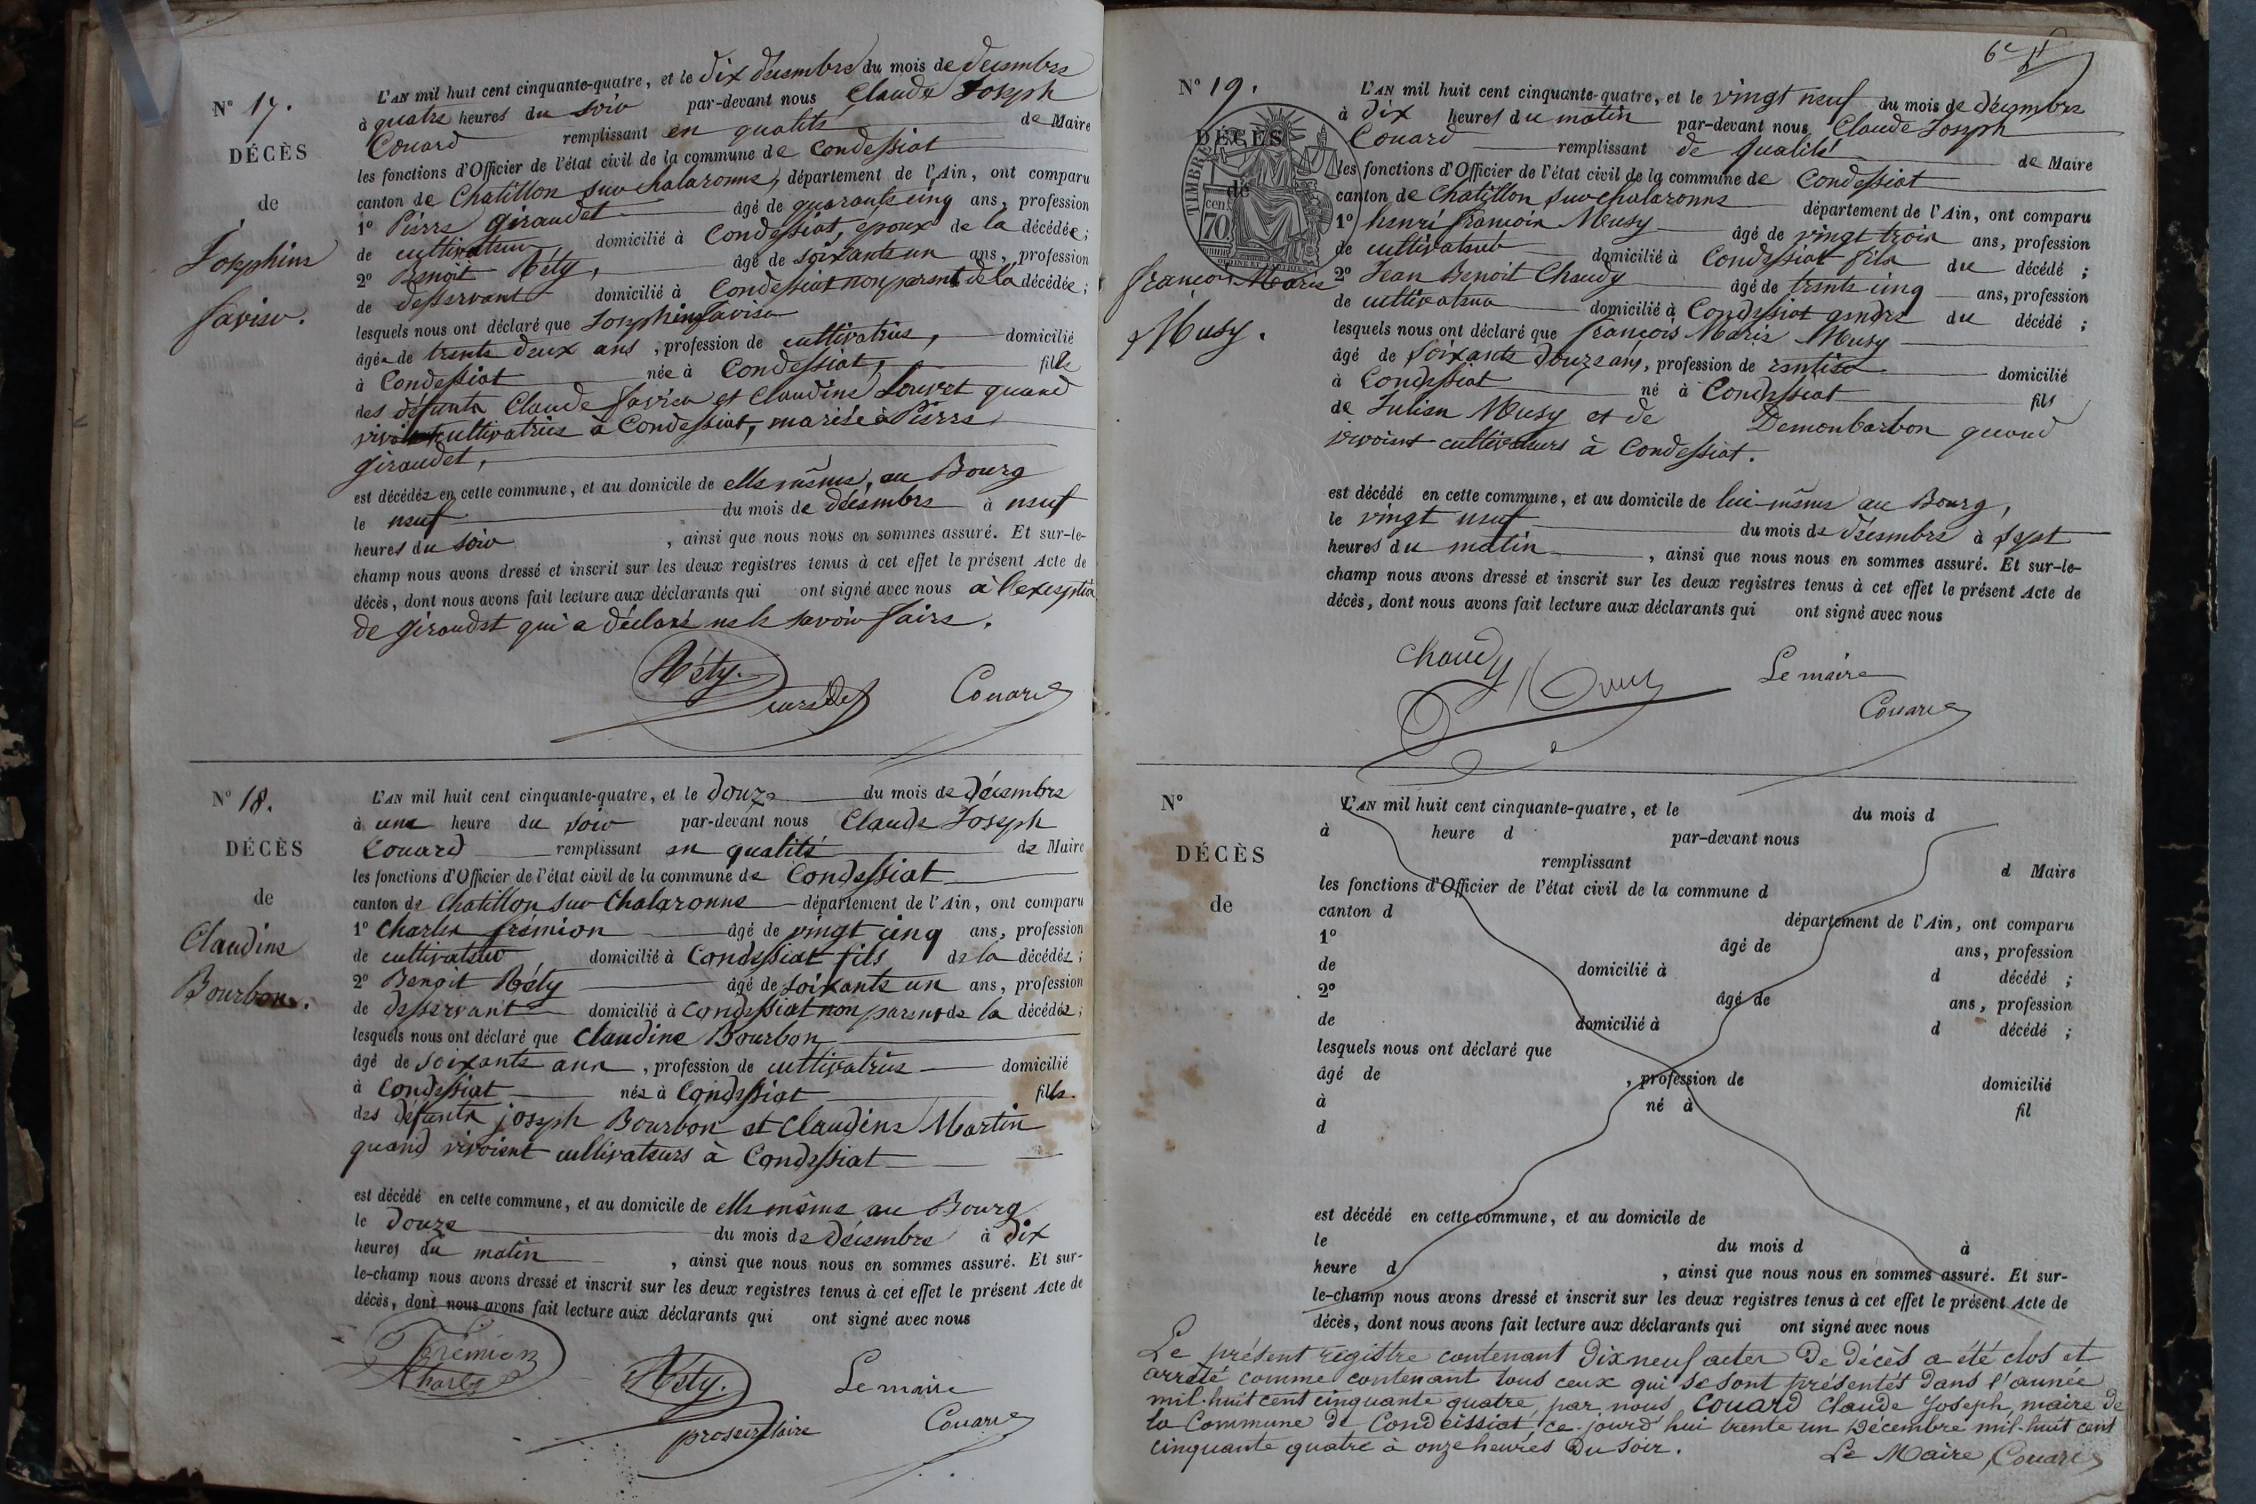 N° 17.
DÉCÈS
de
Josephine
Savier.
L'AN mil huit cent cinquante-quatre, et le dix décembre du mois de décembre
à quatre heures du soir par-devant nous Claude Joseph
Couard remplissant en qualité de Maire
les fonctions d'Officier de l'état civil de la commune de Condessiat
canton de Chatillon sur chalaronne, département de l'Ain, ont comparu
1° Pierre giraudet âgé de quarante cinq ans, profession
de cultivateur domicilié à Condessiat, époux de la décédée;
2° Benoit Réty, âgé de soixante un ans, profession
de desservant domicilié à Condessiat non parent de la décédée;
lesquels nous ont déclaré que Josephine Savier
âgée de trente deux ans, profession de cultivatrice, domicilié
à Condessiat née à Condessiat, fille
des défunts Claude Savier et Claudine Louvet quand
vivoient cultivatrice à Condessiat, mariée à Pierre
giraudet,
est décédée en cette commune, et au domicile de elle même, au Bourg
le neuf du mois de décembre à neuf
heures du soir, ainsi que nous nous en sommes assuré. Et sur-le-
champ nous avons dressé et inscrit sur les deux registres tenus à cet effet le présent Acte de
décès, dont nous avons fait lecture aux déclarants qui ont signé avec nous à l'exception
de giraudet qui a déclaré ne le savoir faire.
Réty.
Couard
N° 18.
DÉCÈS
de
Claudine
Bourbon.
L'AN mil huit cent cinquante-quatre, et le douze du mois de Décembre
à une heure du soir par-devant nous Claude Joseph
Couard remplissant en qualité de Maire
les fonctions d'Officier de l'état civil de la commune de Condessiat
canton de Chatillon sur Chalaronne département de l'Ain, ont comparu
1° Charles frémion âgé de vingt cinq ans, profession
de cultivateur, domicilié à Condessiat fils de la décédée;
2° Benoit Réty âgé de soixante un ans, profession
de desservant domicilié à Condessiat non parent de la décédée;
lesquels nous ont déclaré que Claudine Bourbon
âgé de soixante ans, profession de cultivatrice domicilié
à Condessiat née à Condessiat fille.
des défunts joseph Bourbon et Claudine Martin
quand vivoient cultivateurs à Condessiat
est décédé en cette commune, et au domicile de elle même au Bourg
le douze du mois de Décembre à dix
heures du matin, ainsi que nous nous en sommes assuré. Et sur-
le-champ nous avons dressé et inscrit sur les deux registres tenus à cet effet le présent Acte de
décès, dont nous avons fait lecture aux déclarants qui ont signé avec nous
Frémion
Charles
Réty.
Le maire
Couard
N° 19.
DÉCÈS
de
TIMBRE
70 cen
françois Marie
Musy.
L'AN mil huit cent cinquante-quatre, et le vingt neuf du mois de décembre
à dix heures du matin par-devant nous Claude Joseph
Couard remplissant de qualité de Maire
les fonctions d'Officier de l'état civil de la commune de Condessiat
canton de Chatillon sur chalaronne département de l'Ain, ont comparu
1° henri françois Musy âgé de vingt trois ans, profession
de cultivateur domicilié à Condessiat fils du décédé;
2° Jean Benoit Chaudy âgé de trente cinq ans, profession
de cultivateur domicilié à Condessiat gendre du décédé;
lesquels nous ont déclaré que françois Marie Musy
âgé de soixante douze ans, profession de rentier domicilié
à Condessiat né à Condessiat fils
de Julien Musy et de Demonbarbon quand
vivoient cultivateurs à Condessiat.
est décédé en cette commune, et au domicile de lui-même au Bourg,
le vingt neuf du mois de décembre à sept
heures du matin, ainsi que nous nous en sommes assuré. Et sur-le-
champ nous avons dressé et inscrit sur les deux registres tenus à cet effet le présent Acte de
décès, dont nous avons fait lecture aux déclarants qui ont signé avec nous
chaudy
Le maire
Couard
N°
DÉCÈS
de
L'AN mil huit cent cinquante-quatre, et le du mois d
à heure d par-devant nous
remplissant d Maire
les fonctions d'Officier de l'état civil de la commune d
canton d département de l'Ain, ont comparu
1° âgé de ans, profession
de domicilié à d décédé;
2° âgé de ans, profession
de domicilié à d décédé;
lesquels nous ont déclaré que
âgé de , profession de domicilié
à né à fil
d
est décédé en cette commune, et au domicile de
le du mois d à
heure d , ainsi que nous nous en sommes assuré. Et sur-
le-champ nous avons dressé et inscrit sur les deux registres tenus à cet effet le présent Acte de
décès, dont nous avons fait lecture aux déclarants qui ont signé avec nous
Le présent registre contenant Dix neuf actes De décès a été clos et
arrêté comme contenant tous ceux qui se sont présentés Dans l'année
mil-huit cent cinquante quatre, par nous Couard Claude Joseph, maire de
la Commune de Condeissiat, ce-jourd'hui trente un Décembre mil-huit cent
cinquante quatre à onze heures Du soir.
Le Maire, Couard